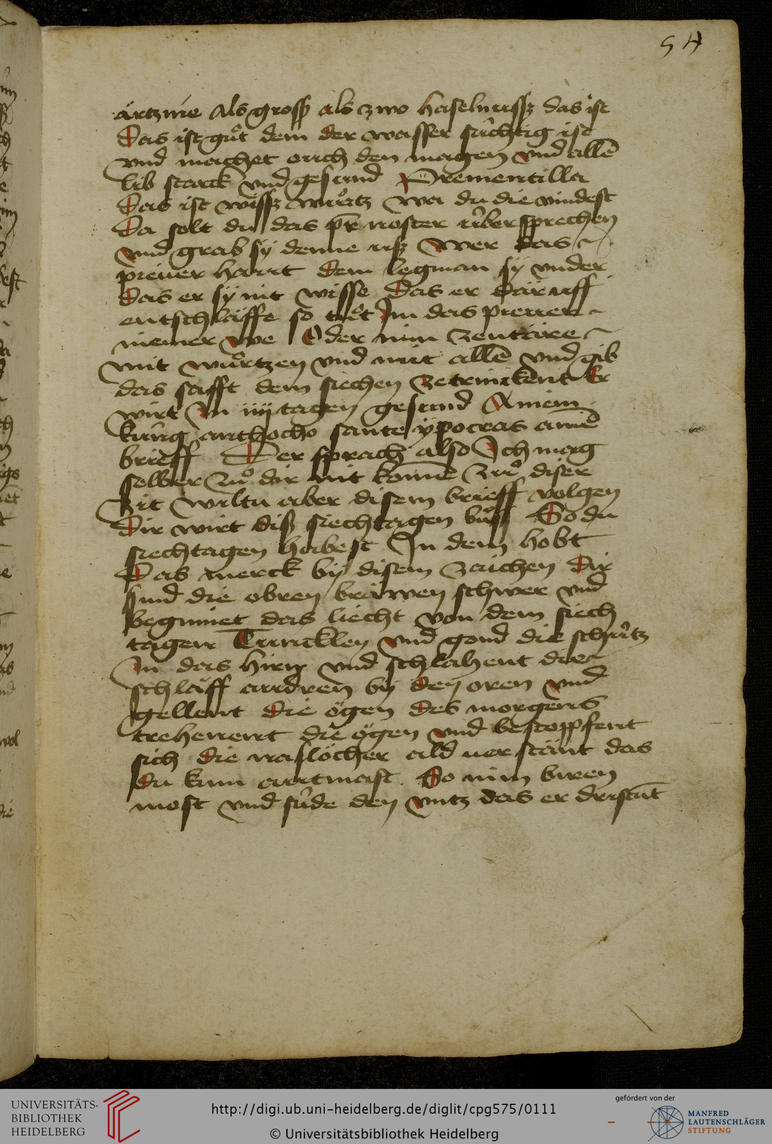 54
ärtznie als gross als zwo haselnussz das ist
Das ist gůt dem der wasser sücktig ist
vnd machet ouch den magen vnd allē
lib starck vnd gesund Prementilla
Das ist wissz wůrtz wa du die vindest
Da solt du das pr̄ noster über sprechen
vnd grab sy denne usz Wer das
hant dem legman sy vnder
das er sy nit wisse Das er dar uff
entschlaffe so tůt Im das
niemer we Oder nim zentaire
mit wůrtzen vnd mit allē vnd gib
das safft dem siechen ze trinckent Er
wirt In iiij tagen gesund Amem
küng anthocho sante ypocras ainē
brieff Der sprach also Ich mag
selber zů dir nit komē zů diser
zit wiltu aber disem brieff volgen
Dir wirt diss siechtagen bůss So du
siechtagen habest In dem hobt
Das merck by disem zaichen Dir
sind die obren brawen schwer vnd
beginnet das liecht von dem siech
tagen Tuncklen vnd gond die schůtz
In das hirn vnd schlahent die
schlaff audren by den oren vnd
gellent die ögen des morgens
trehenent die ögen vnd bestopfent
sich die naslöcher ald verstant das
du kum autmast So nim biren
most vnd sude den vntz das er
UNIVERSITÄTS-
BIBLIOTHEK
HEIDELBERG
http://digi.ub.uni-heidelberg.de/diglit/cpg575/0111
© Universitätsbibliothek Heidelberg
gefördert von der
MANFRED
LAUTENSCHLÄGER
STIFTUNG